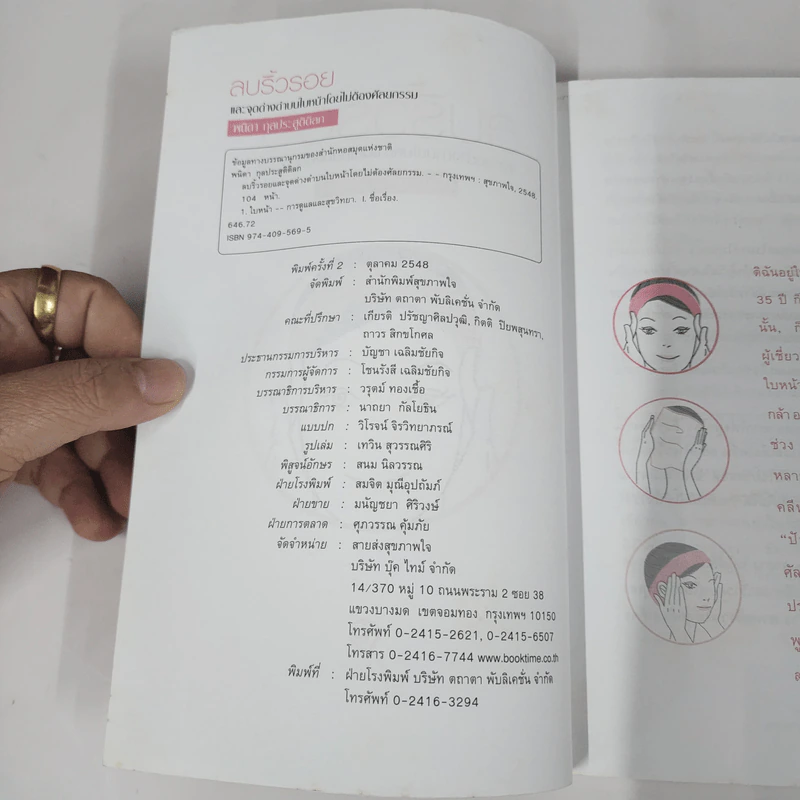 ลบริ้วรอย
และจุดด่างดำบนใบหน้าโดยไม่ต้องศัลยกรรม
พนิดา กุลประสูติดิลก
ข้อมูลทางบรรณานุกรมของสำนักหอสมุดแห่งชาติ
พนิดา กุลประสูติดิลก
ลบริ้วรอยและจุดด่างดำบนใบหน้าโดยไม่ต้องศัลยกรรม. -- กรุงเทพฯ : สุขภาพใจ, 2548.
104 หน้า.
1. ใบหน้า -- การดูแลและสุขวิทยา. I. ชื่อเรื่อง.
646.72
ISBN 974-409-569-5
พิมพ์ครั้งที่ 2 : ตุลาคม 2548
จัดพิมพ์ : สำนักพิมพ์สุขภาพใจ
บริษัท ตถาตา พับลิเคชั่น จำกัด
คณะที่ปรึกษา : เกียรติ ปรัชญาศิลปวุฒิ, กิตติ ปิยพสุนทรา,
ถาวร สิกขโกศล
ประธานกรรมการบริหาร : บัญชา เฉลิมชัยกิจ
กรรมการผู้จัดการ : โชนรังสี เฉลิมชัยกิจ
บรรณาธิการบริหาร : วรุตม์ ทองเชื้อ
บรรณาธิการ : นาถยา กัลโยธิน
แบบปก : วิโรจน์ จิรวิทยาภรณ์
รูปเล่ม : เทวิน สุวรรณศิริ
พิสูจน์อักษร : สนม นิลวรรณ
ฝ่ายโรงพิมพ์ : สมจิต มุณีอุปถัมภ์
ฝ่ายขาย : มนัญชยา ศิริวงษ์
ฝ่ายการตลาด : ศุภวรรณ คุ้มภัย
จัดจำหน่าย : สายส่งสุขภาพใจ
บริษัท บุ๊ค ไทม์ จำกัด
14/370 หมู่ 10 ถนนพระราม 2 ซอย 38
แขวงบางมด เขตจอมทอง กรุงเทพฯ 10150
โทรศัพท์ 0-2415-2621, 0-2415-6507
โทรสาร 0-2416-7744 www.booktime.co.th
พิมพ์ที่ : ฝ่ายโรงพิมพ์ บริษัท ตถาตา พับลิเคชั่น จำกัด
โทรศัพท์ 0-2416-3294
ดิฉันอยู่ใ
35 ปี
นั้น,
ผู้เชี่ยว
ใบหน้า
กล้า
ช่วง
หลา
คลีน
"ปั
ศัล
ปร
พู